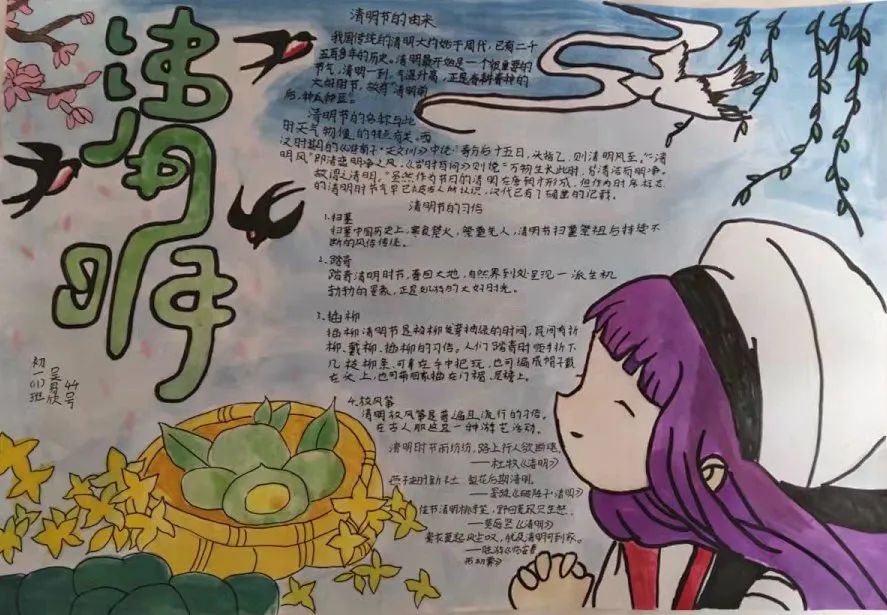 清明
初一(1)班
44号
清明节的由来
我国传统的清明大约始于周代,已有二千
五百多年的历史。清明最开始是一个很重要的
节气,清明一到,气温升高,正是春耕春种的
大好时节,故有“清明前
后,种瓜种豆。
清明节的名称与此
时天气物候的特点有关。西
汉时期的《淮南子·天文训》中说:“春分后十五日,斗指乙,则清明风至。”“清
明风”即清爽明净之风。《岁时百问》则说“万物生长此时,皆清洁而明净。
故谓之清明。”虽然作为节日的清明在唐朝才形成,但作为时序标志
的清明时节气早已被古人所认识,汉代已有了明确的记载。
清明节的习俗
1.扫墓
扫墓中国历史上,寒食禁火,祭奠先人,清明节扫墓祭祖后持续不
断的风俗传统。
2.踏青
踏青清明时节,春回大地,自然界到处呈现一派生机
勃勃的景象,正是郊游的大好时光。
3.插柳
插柳清明节是杨柳发芽抽绿的时间,民间有折
柳、戴柳、插柳的习俗。人们踏青时顺手折下
几枝柳条,可拿在手中把玩,也可编成帽子戴
在头上,也可带回家插在门楣、屋檐上。
4.放风筝
清明放风筝是普遍且流行的习俗。
在古人那这是一种游艺活动。
清明时节雨纷纷,路上行人欲断魂。
——杜牧《清明》
燕子来时新社 梨花后期清明。
——晏殊《破阵子·清明》
佳节清明桃李笑,野田荒冢只生愁
——黄庭坚《清明》
素衣莫起风尘叹,犹及清明可到家。
——陆游《临安春
雨初霁》